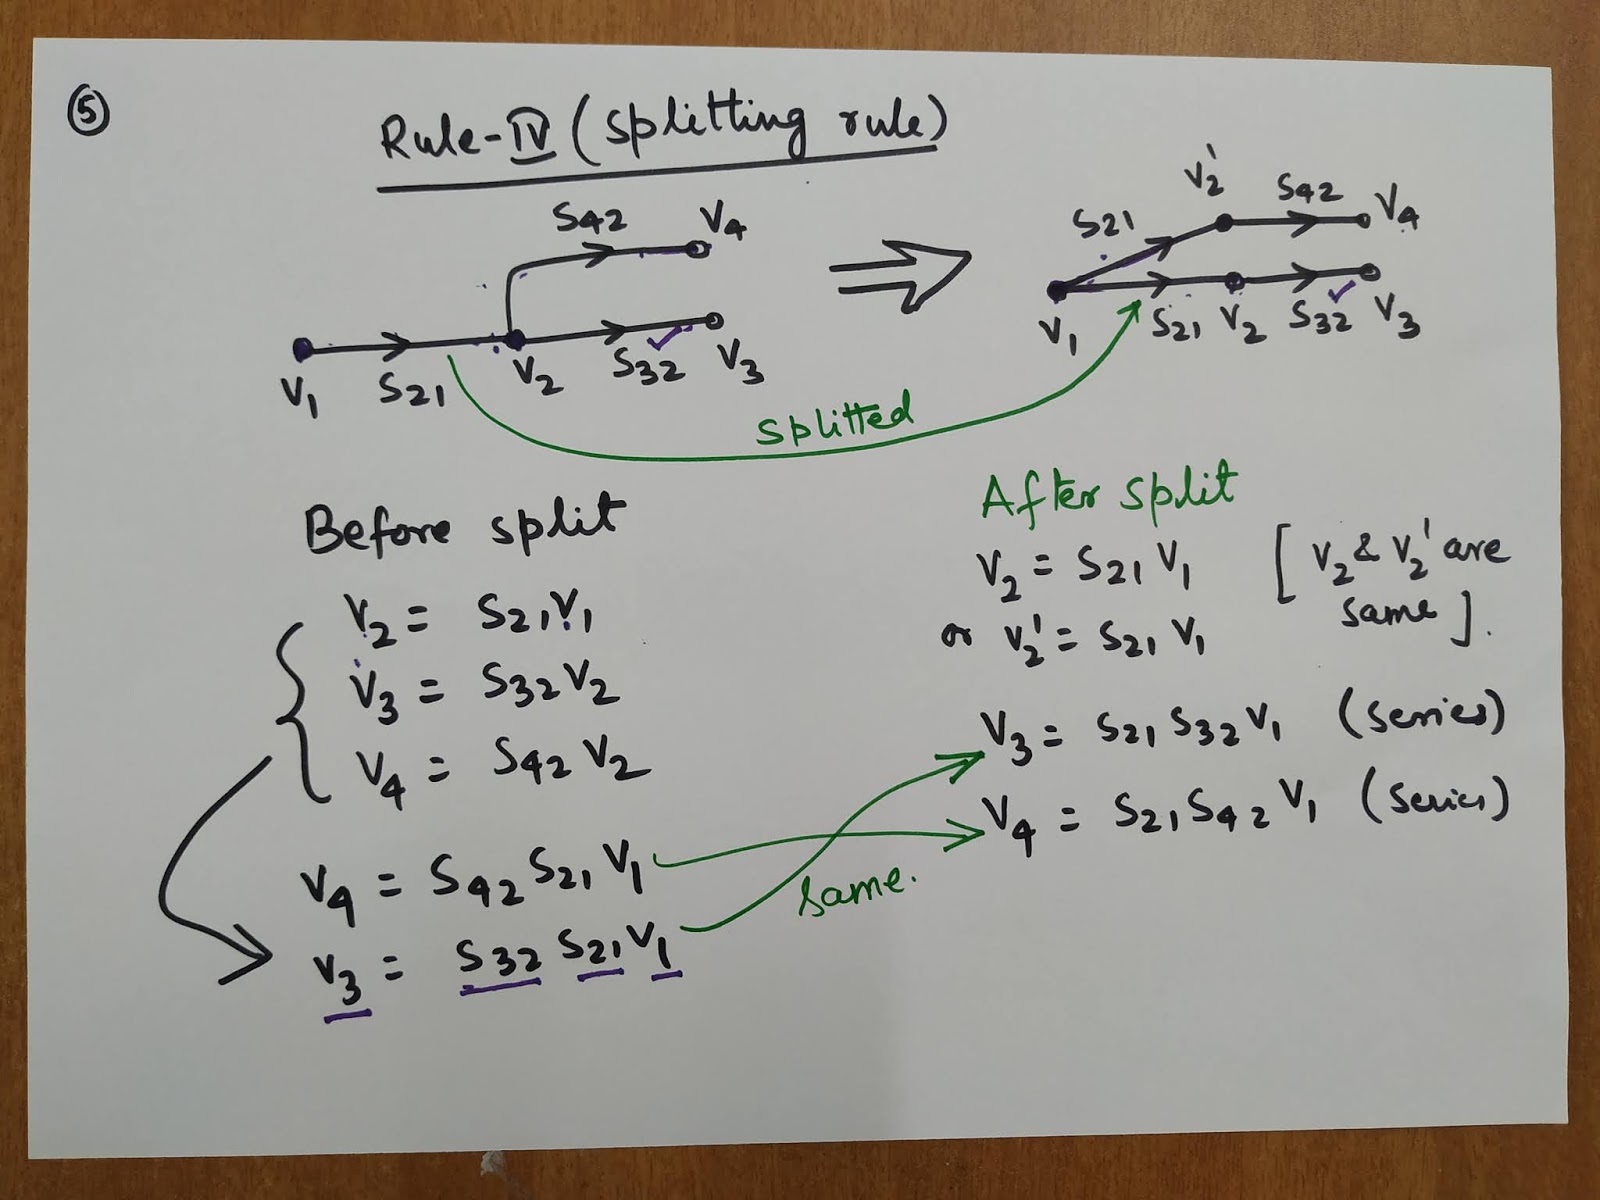 ⑤
Rule-IV (splitting rule)
S42 V4
V1 S21 V2 S32 ✓ V3
V2' S42 V4
S21
V1 S21 V2 S32 ✓ V3
splitted
Before split
V2 = S21V1
V3 = S32V2
V4 = S42 V2
V4 = S42 S21 V1
V3 = S32 S21 V1
same.
After split
V2 = S21 V1 [ V2 & V2' are
or V2' = S21 V1 same ].
V3 = S21 S32 V1 (series)
V4 = S21 S42 V1 (series)